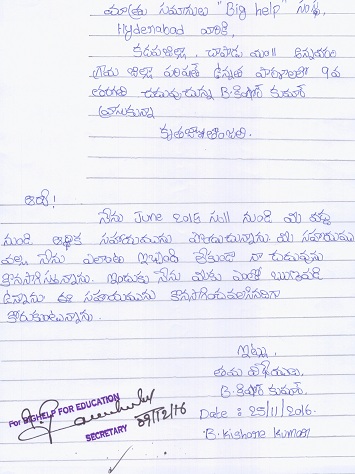 మాతృ సమానులు "Big help" సంస్థ,
Hyderabad వారికి,
కడపజిల్లా, చాపాడు మం॥
గ్రామ జిల్లా పరిషత్ ఉన్నత పాఠశాలలో 9వ
తరగతి చదువుచున్న B.కిషోర్ కుమార్
వ్రాసుకున్న
కృతజ్ఞతాంజలి.
అయ్యా!
నేను June 2015 నుండి మీ సంస్థ
నుండి ఆర్థిక సహాయమును పొందుచున్నాను. మీ సహాయము
వల్ల నేను ఎలాంటి ఇబ్బంది లేకుండా నా చదువును
కొనసాగిస్తున్నాను. ఇందుకు నేను మీకు ఎంతో ఋణపడి
ఉన్నాను ఈ సహాయమును కొనసాగించవలసినదిగా
కోరుకుంటున్నాను.
ఇట్లు,
తమ విధేయుడు,
B.కిషోర్ కుమార్.
Date : 25/11/2016.
B.Kishore kumar
For BIGHELP FOR EDUCATION
09/12/16
SECRETARY